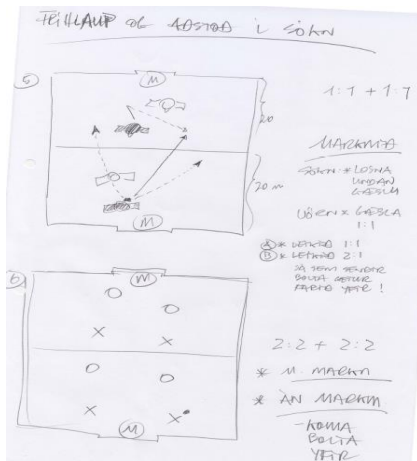 FRÍHLAUP OG AÐSTOÐ Í SÓKN
5
M
1:1 + 1:1
20
MARKMIÐ
SÓKN: * LOSNA
UNDAN
GÆSLU
20 m
VÖRN * GÆSLA
1:1
M
A * LEIKIÐ 1:1
B * LEIKIÐ 2:1
SÁ SEM SENDER
BOLTA GETUR
FARIÐ YFIR !
6
M
O
O
X
X
2:2 + 2:2
O
O
* M. MARKM
X
X
* ÁN MARKM
M
- KOMA
BOLTA
YFIR